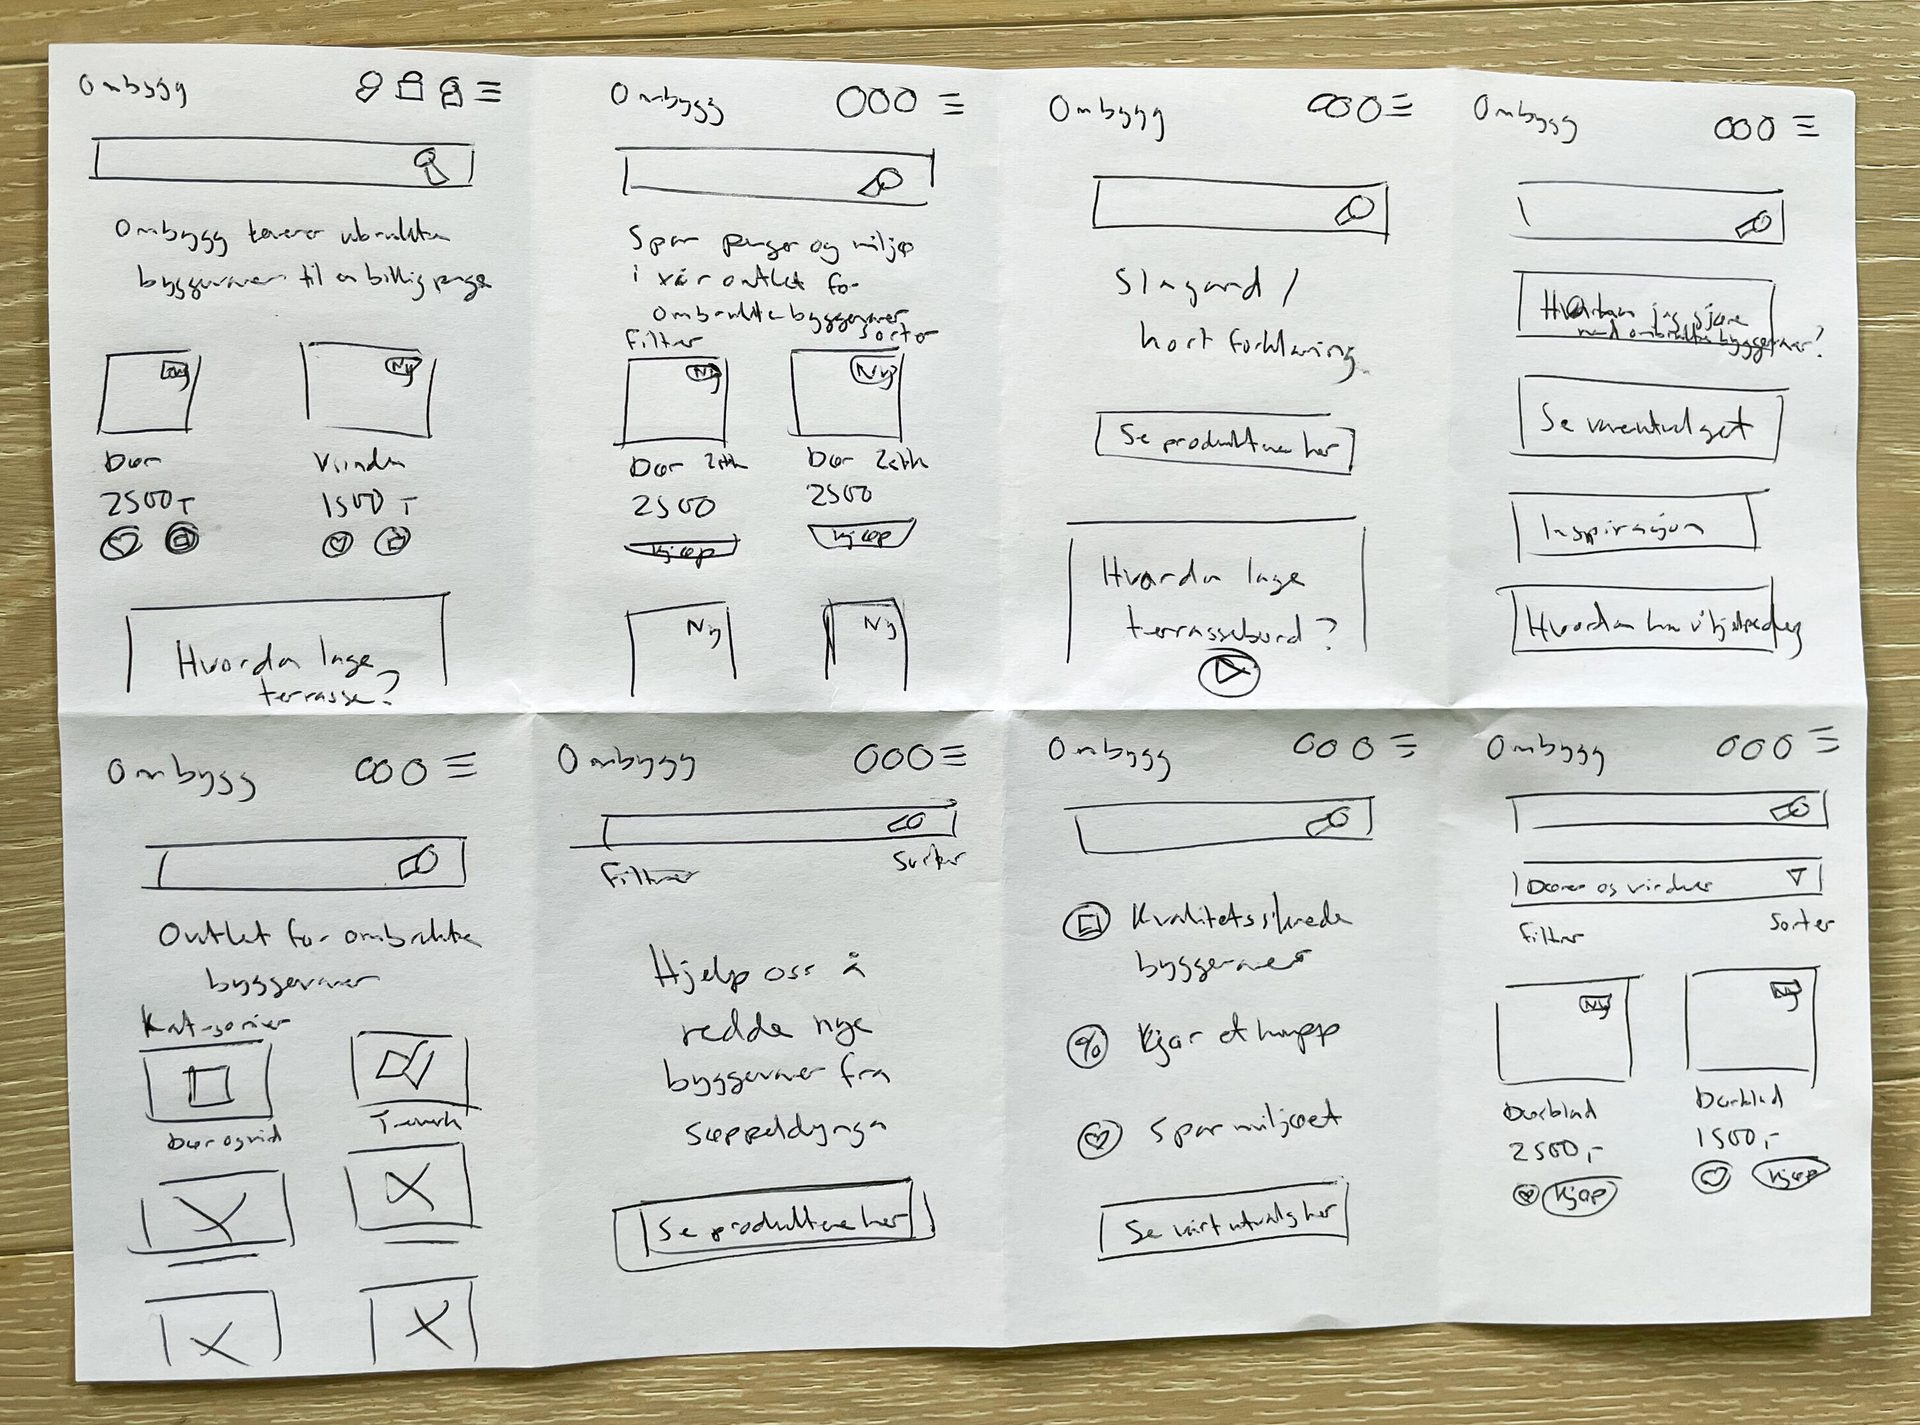 Ombygg
Ombygg
byggevarer til en billig penge
Ny
Dør
Vindu
2500
1500
Hvordan lage
terrasse?
Ombygg
Spar penger og miljø
i vår outlet for
ombrukte byggevarer
Filtrer
Sorter
Ny
Ny
Dør 2stk
Dør 2stk
2500
2500
Kjøp
Kjøp
Ny
Ny
Ombygg
Slagord /
kort forklaring
Se produktene her
Hvordan lage
terrassebord?
Ombygg
Hvordan jeg gjøre
med ombrukte byggevarer?
Se vareutvalget
Inspirasjon
Hvordan kan vi hjelpe deg
Ombygg
Outlet for ombrukte
byggevarer
Kategorier
Dør og vind
Trevirk
Ombygg
Filtrer
Sorter
Hjelp oss å
redde nye
byggevarer fra
søppeldynga
Se produktene her
Ombygg
Kvalitetssikrede
byggevarer
%
Kjør et kupp
Spar miljøet
Se vårt utvalg her
Ombygg
Dører og vinduer
Filtrer
Sorter
Ny
Ny
Dørblad
Dørblad
2500,-
1500,-
Kjøp
Kjøp